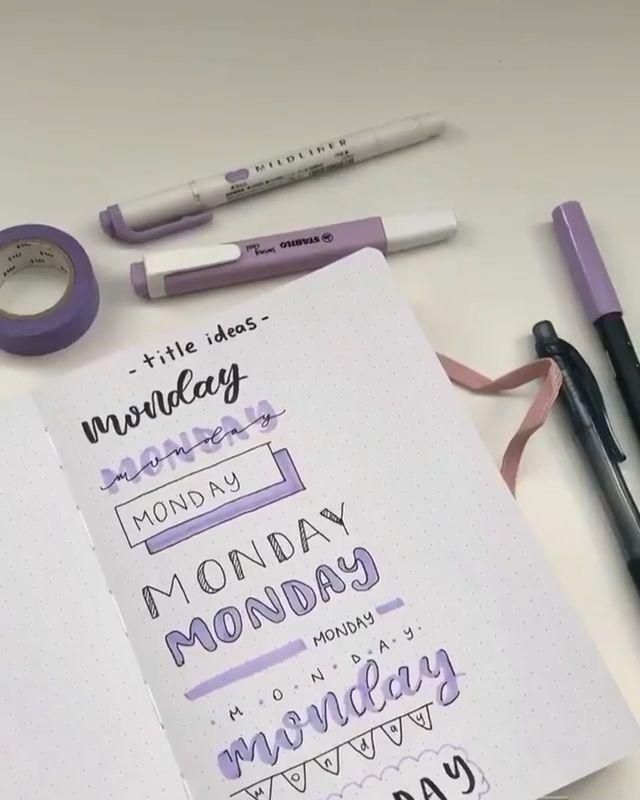 MILDLINER
STABILO
swing cool
- title ideas -
monday
MONDAY
monday
MONDAY
MONDAY
MONDAY
MONDAY
M.O.N.D.A.Y.
monday
monday
DAY